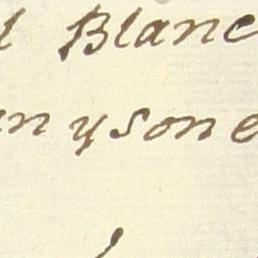 l Blanc
n y son e